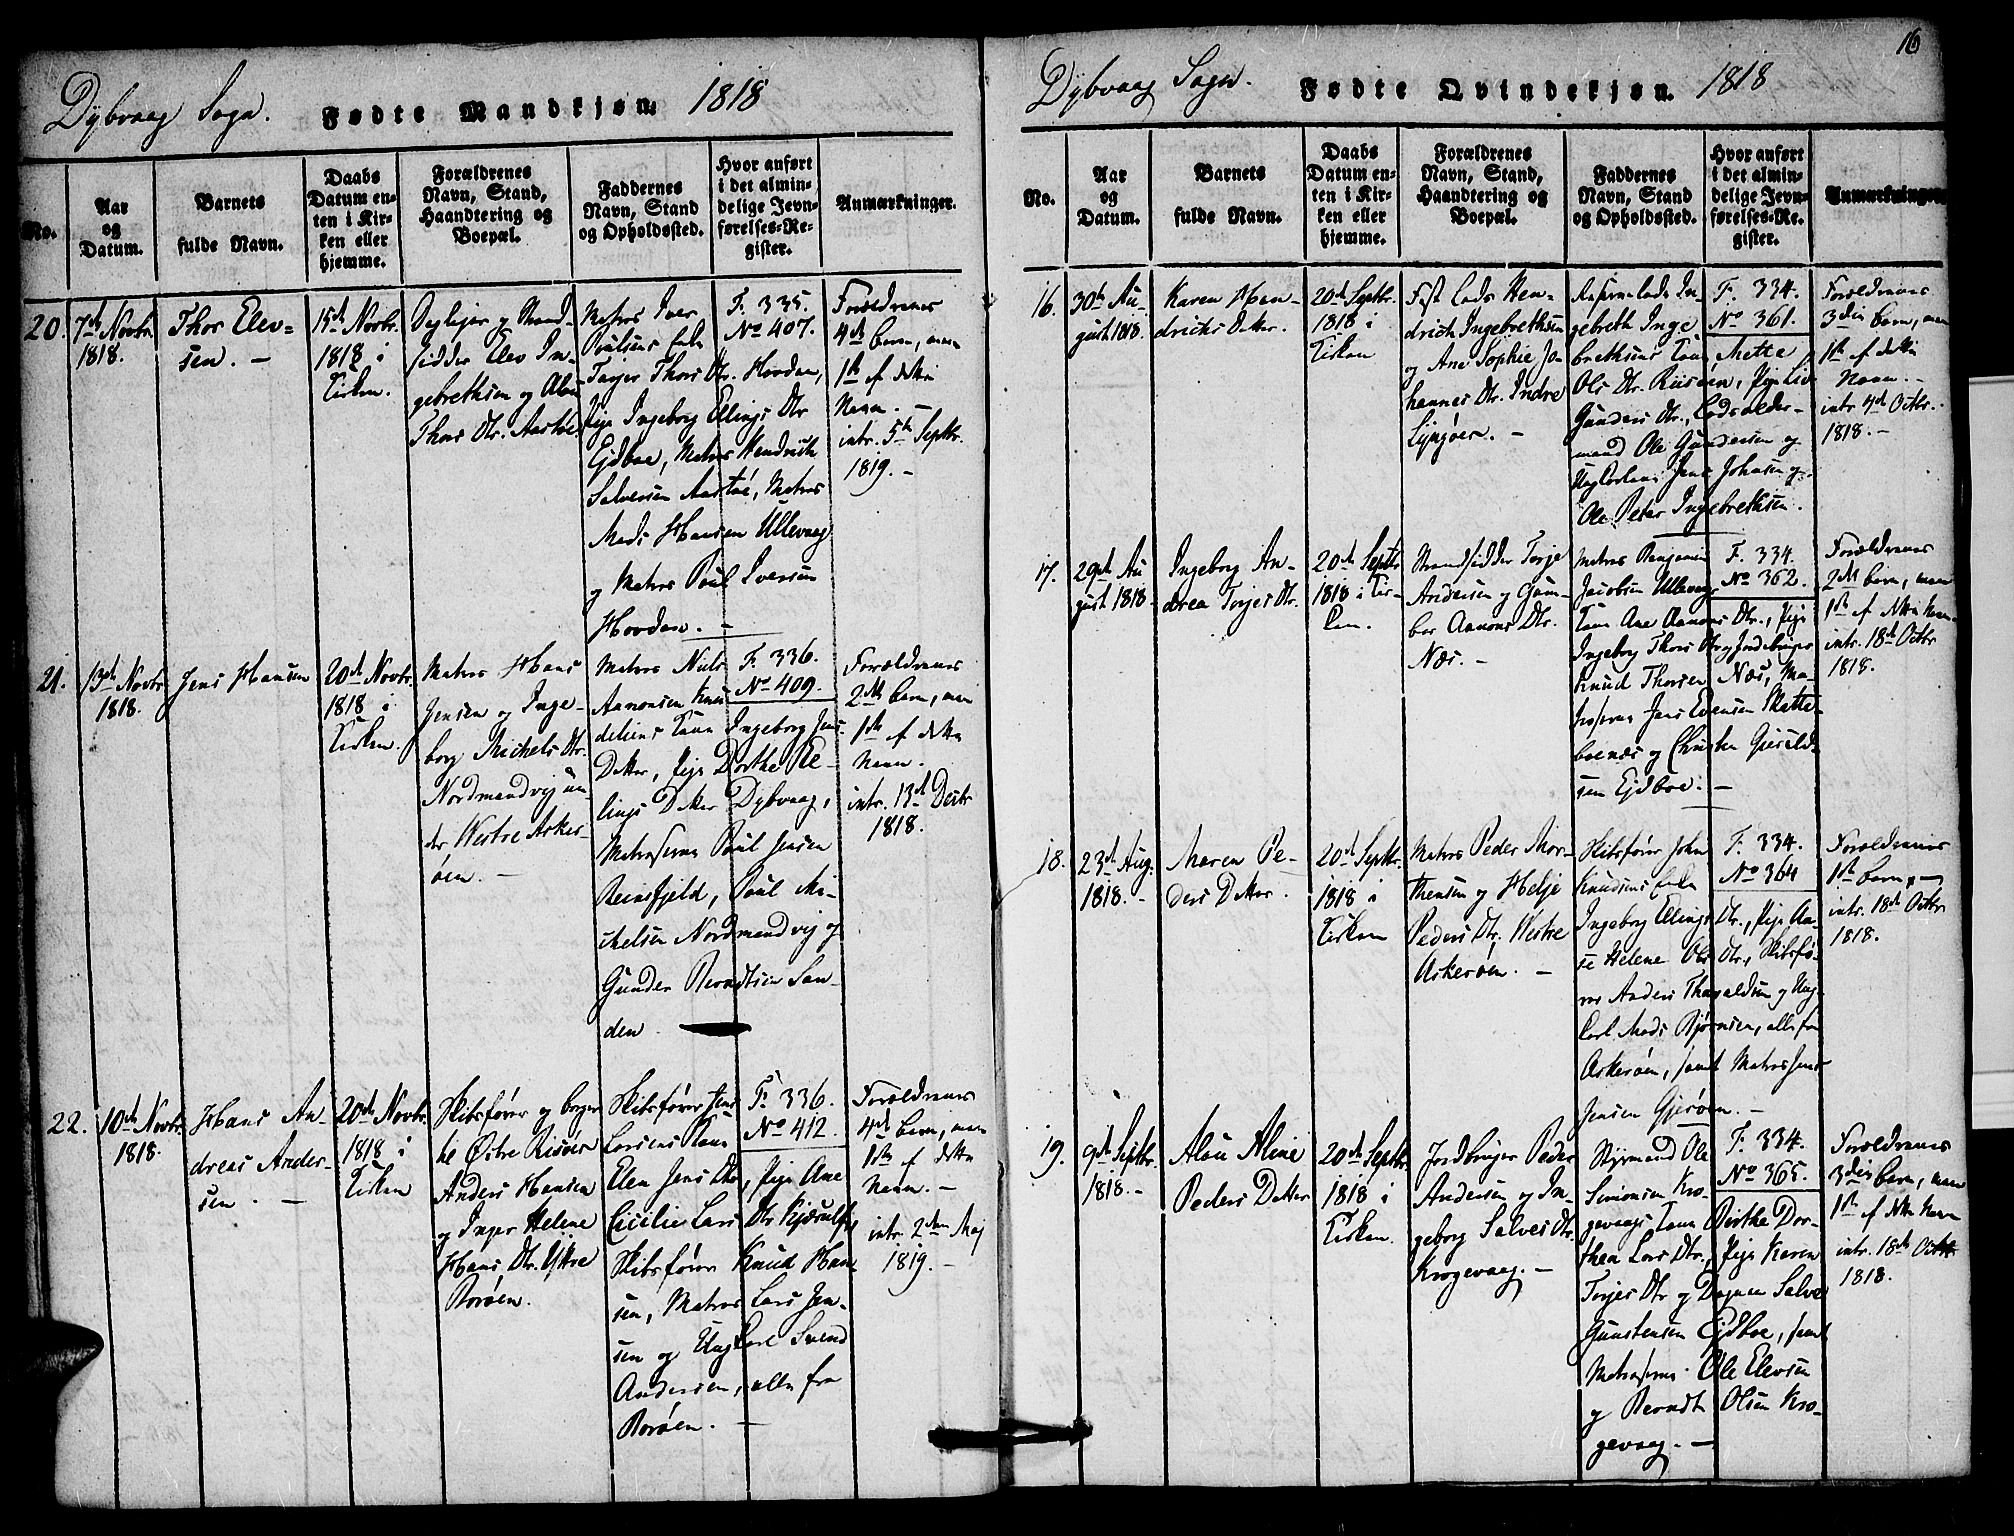 Dybvaag Sogn. Fødte Mandkjøn. 1818
No.
Aar
og
Datum.
Barnets
fulde Navn.
Daabs
Datum en-
ten i Kir-
ken eller
hjemme.
Forældrenes
Navn, Stand,
Haandtering og
Boepæl.
Faddernes
Navn, Stand
og Opholdssted.
Hvor anført
i det almin-
delige Jevn-
førelses-Re-
gister.
Anmærkninger.
20.
7de Novbr.
1818.
Thor Elev-
sen. -
15de Novbr.
1818 i
Kirken.
Oplejer og Strand-
sidder Elev In-
gebrethsen og
Thors Dtr. Aastøe
Matros Iver
Poulsens
Torger Thors Dtr. Hovdan,
Pige Ingeborg Ellings Dtr
Ejdboe, Matros Hendrich
Salvesen Aastøe, Matros
Mads Hansen Ullevaag
og Matros Poul Iversen
Hovdan. -
F. 335.
No 407.
Forældrenes
4de barn, men
1ste af dette
Navn. -
intr. 5te Septbr.
1819. -
21.
13de Novbr.
1818.
Jens Hansen
20de Novbr.
1818 i
Kirken.
Matros Hans
Jensen og Inge-
borg Michels Dtr.
Nordmandvig un-
der Westre Asker-
øen. -
Matros Niels
Aanonsen
Ingeborg Jens
Datter, Pige Dorthe El-
lings Datter Dybvaag,
Matroserne Poul Jensen
Reinsfjeld, Poul Mi-
chelsen Nordmandvig og
Gunder Berndtsen San-
den.
F. 336.
No 409.
Forældrenes
2det barn, men
1ste af dette
Navn.
intr. 13de Decbr
1818.
22.
10de Novbr.
1818.
Hans An-
dreas Ander-
sen. -
20de Novbr.
1818 i
Kirken
Skibsfører og borger
til Østre Risøer
Anders Hansen
og Inger Helene
Hans Dtr. Ystre
Borøen.
Skibsfører Jens
Larsens Kone
Elen Jens Dtr, Pige Ane
Cicilie Lars Dtr
Skibsfører Knud Han-
sen, Matros Lars Jen-
sen og Ungkarl Svend
Andersen, alle fra
Borøen. -
F. 336.
No 412.
Forældrenes
4de barn, men
1ste af dette
Navn. -
intr. 2den Maj
1819. -
16
Dybvaag Sogn. Fødte Qvindekjøn. 1818
No.
Aar
og
Datum.
Barnets
fulde Navn.
Daabs
Datum en-
ten i Kir-
ken eller
hjemme.
Forældrenes
Navn, Stand,
Haandtering og
Boepæl.
Faddernes
Navn, Stand
og Opholdssted.
Hvor anført
i det almin-
delige Jevn-
førelses-Re-
gister.
Anmærkninger.
16.
30te Au-
gust 1818.
Karen Hen-
drichs Datter.
20de Septbr.
1818 i
Kirken
Fast Lods Hen-
drich Ingebrethsen
og Ane Sophie Jo-
hannes Dtr. Indre
Lyngøer. -
Reservelods In-
gebreth Inge-
brethsens Kone Mette
Ols Dtr. Riisøen, Pige Liv
Gunders Dtr., Lodsolder-
mand Ole Gundersen og
Ungkarlene Jens Johnsen og
Ole Peter Ingebrethsen.
F. 334.
No 361.
Forældrenes
3die barn, men
1ste af dette
Navn. -
intr. 4de Octbr.
1818. -
17.
29de Au-
gust 1818.
Ingeborg An-
drea Torjes Dtr.
20de Septbr
1818 i Kir-
ken.
Strandsidder Torje
Andersen og Gun-
bor Aanons Dtr.
Næs. -
Matros Benjamin
Jacobsen Ullevaags
Kone Ane Aanons Dtr., Pige
Ingeborg Thors Dtr og Jordbruger
Knud Thorsen Næs, Ma-
troserne Jens Evensen Skatte-
boenæs og Christen Gjeruld-
sen Ejdboe. -
F. 334.
No 362.
Forældrenes
2det barn, men
1ste af dette Navn.
intr. 18de Octbr
1818.
18.
23de Aug.
1818. -
Maren Pe-
ders Datter.
20de Septbr.
1818 i
Kirken
Matros Peder Mor-
thensen og Helje
Peders Dtr. Westre
Askerøen. -
Skibsfører John
Knudsens
Ingeborg Ellings Dtr., Pige Aa-
se Helene Ols Dtr., Skibsfø-
rer Anders Thorvaldsen og Ung-
karl Mads Bjørnsen, alle fra
Askerøen, samt Matros Jens
Jensen Gjerøen. -
F. 334.
No 364
Forældrenes
1ste barn, -
intr. 18de Octbr
1818.
19.
9de Septbr.
1818. -
Alou Aline
Peders Datter
20de Septbr.
1818 i
Kirken.
Jordbruger Peder
Andersen og In-
geborg Salves Dtr.
Krogevaag. -
Styrmand Ole
Simonsen Kro-
gevaags Kone Birthe Dor-
thea Lars Dtr., Pige Karen
Torjes Dtr og Dragon Salve
Gunstensen Ejdboe, samt
Matroserne Ole Elevsen
og Berndt Olsen Kro-
gevaag. -
F. 334.
No 365.
Forældrenes
3die barn, men
1ste af dette Navn
intr. 18de Octbr
1818.